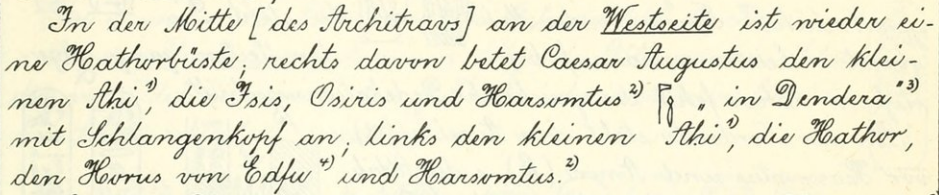 In der Mitte [des Architravs] an der Westseite ist wieder ei-
ne Hathorbüste; rechts davon betet Caesar Augustus den klei-
nen Ahi¹⁾, die Isis, Osiris und Harsomtus²⁾ „in Dendera"³⁾
mit Schlangenkopf an; links den kleinen Ahi¹⁾, die Hathor,
den Horus von Edfu⁴⁾ und Harsomtus.²⁾